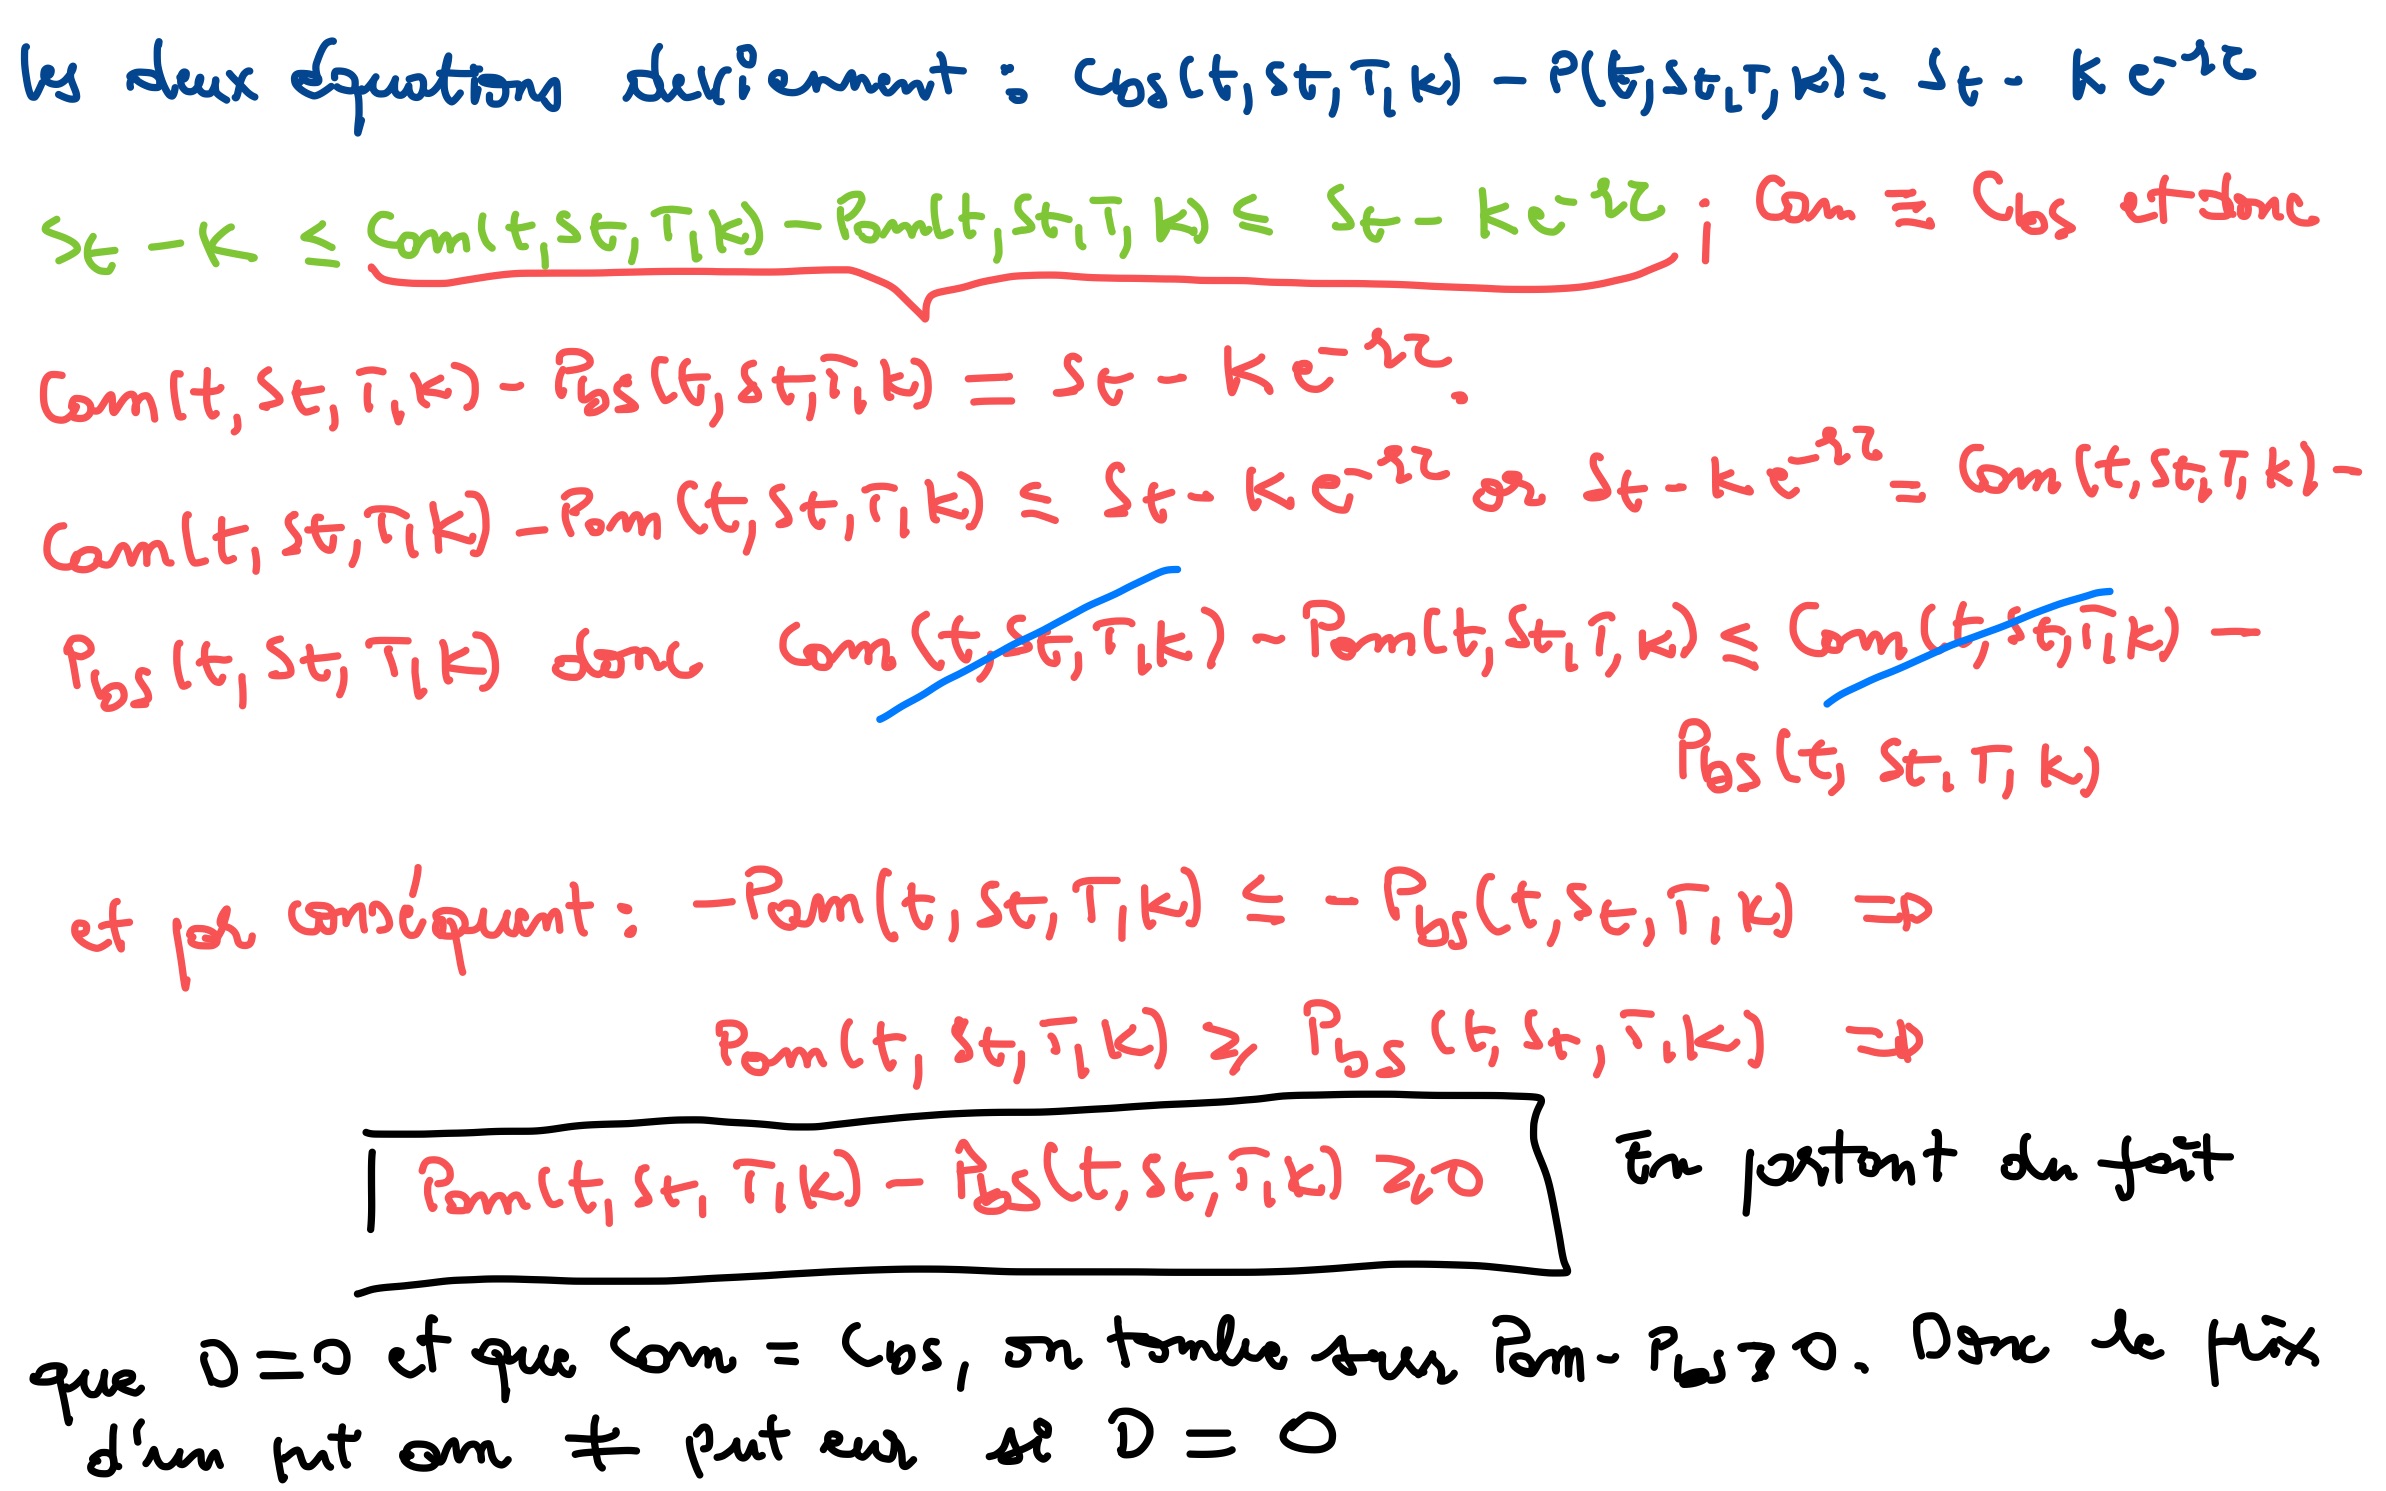 les deux équations deviennent : Cbs(t, St, T, k) - P(t, St, T, k) = St - k e^-rτ
St - K ≤ Cam(t, St, T, k) - Pam(t, St, T, k) ≤ St - k e^-rτ ; Cam = Cbs et donc
Cam(t, St, T, k) - Pbs(t, St, T, k) = St - k e^-rτ.
Cam(t, St, T, k) - Pam(t, St, T, k) ≤ St - k e^-rτ or St - k e^-rτ = Cam(t, St, T, k) -
Pbs(t, St, T, k) donc Cam(t, St, T, k) - Pam(t, St, T, k) ≤ Cam(t, St, T, k) -
Pbs(t, St, T, k)
et par conséquent : - Pam(t, St, T, k) ≤ - Pbs(t, St, T, k) ⇒
Pam(t, St, T, k) ≥ Pbs(t, St, T, k) ⇒
Pam(t, St, T, k) - Pbs(t, St, T, k) ≥ 0 En partant du fait
que D = 0 et que Cam = Cbs, on tombe sur Pam - Pbs ≥ 0. Donc le prix
d'un put am ≠ put eur si D = 0